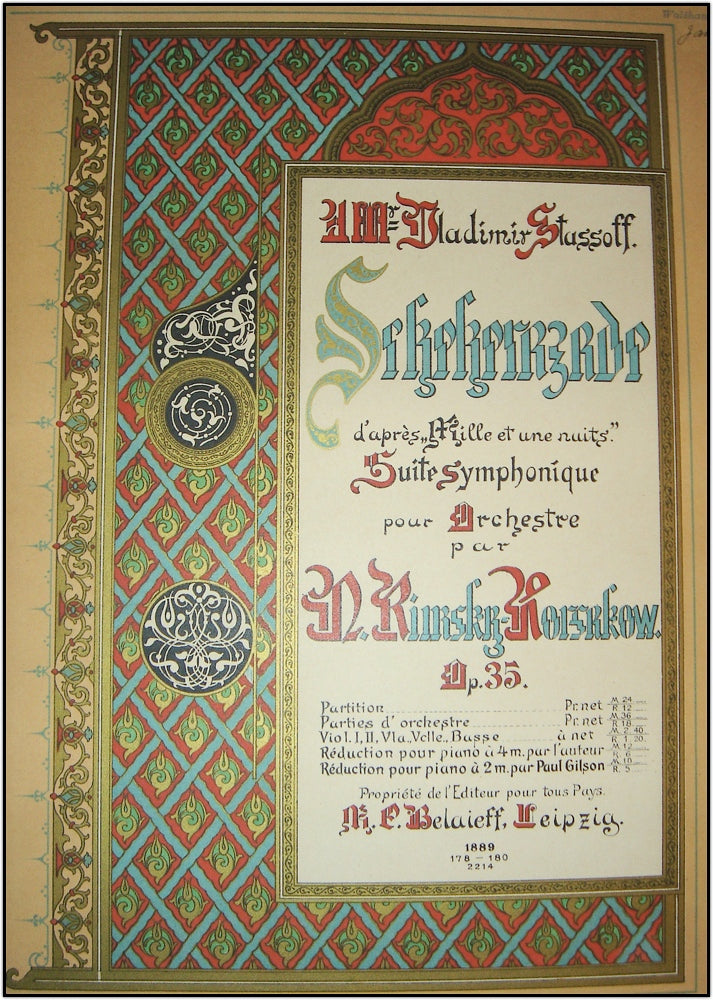 A Mr Vladimir Stassoff.
Scheherazade
d'après „Mille et une nuits."
Suite symphonique
pour Orchestre
par
N. Rimsky-Korsakow.
Op. 35.
Partition Pr. net M 24 R 12
Parties d'orchestre Pr. net M 36 R 18
Viol. I, II, Vla., Vclle., Basse à net M 2 40 R 1 20
Réduction pour piano à 4 m. par l'auteur M 12 R 6
Réduction pour piano à 2 m. par Paul Gilson M 10 R 5
Propriété de l'Editeur pour tous Pays.
M. P. Belaieff, Leipzig.
1889
178 – 180
2214